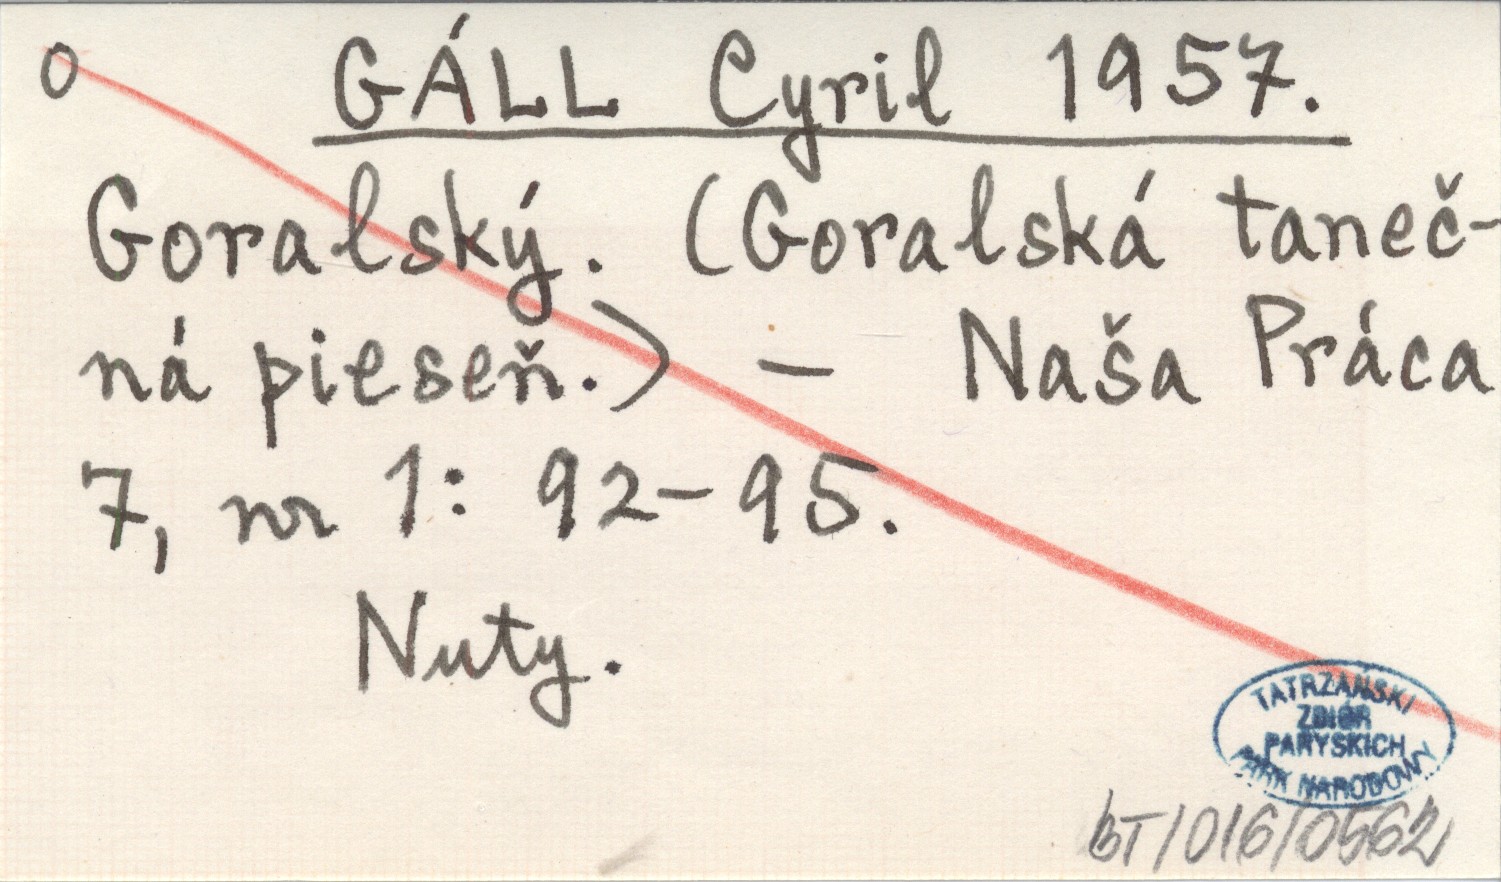 O GÁLL Cyril 1957.
Goralský. (Goralská taneč-
ná pieseň.) – Naša Práca
7, nr 1: 92–95.
Nuty.
TATRZAŃSKI
ZBIÓR
PARYSKICH
PARK NARODOWY
BT/016/0562